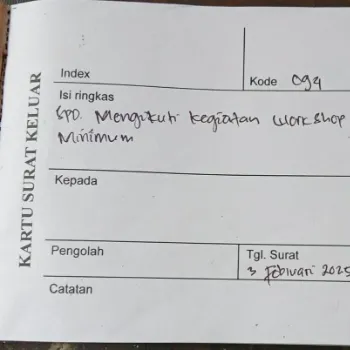 KARTU SURAT KELUAR
Index
Kode 094
Isi ringkas
SPD. Mengikuti kegiatan workshop
Minimum
Kepada
Pengolah
Tgl. Surat
3 Februari 2025
Catatan